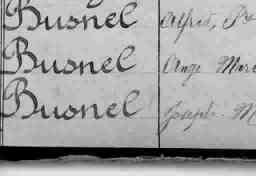 Busnel Alfred,
Busnel Ange Marie
Busnel Joseph M